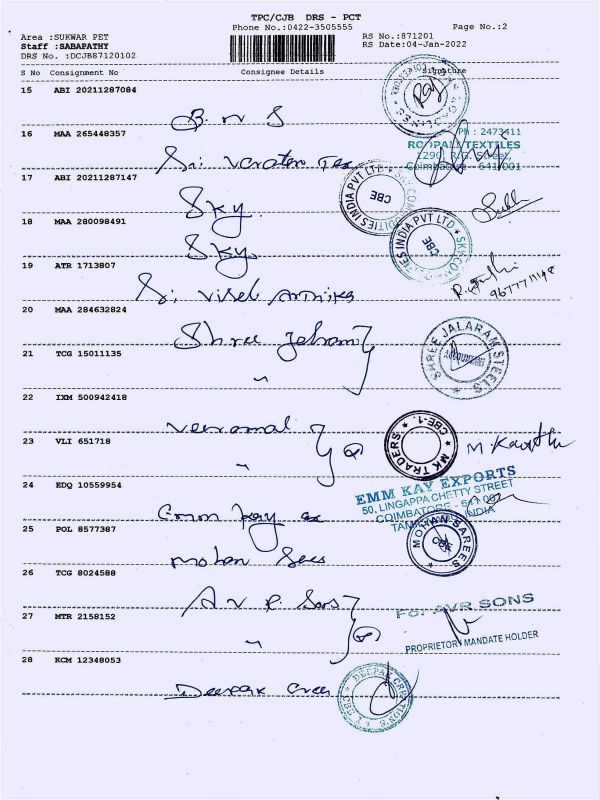 TPC/CJB DRS - PCT
Phone No.:0422-3505555
Page No.:2
Area :SUKWAR PET
RS No.:871201
Staff :SABAPATHY
RS Date:04-Jan-2022
DRS No. :DCJB87120102
S No Consignment No Consignee Details Signature
15 ABI 20211287084
B. N S
16 MAA 265448357
Ph : 2473411
ROOPALI TEXTILES
1290, R.G. Street,
Coimbatore - 641 001
Sri
17 ABI 20211287147
INDIA PVT LTD
CBE
Sky
18 MAA 280098491
Sky
INDIA PVT LTD
CBE
19 ATR 1713807
9677711148
Sri
20 MAA 284632824
Shree
SHREE JALARAM STEELS
ACCOUNTANT
21 TCG 15011135
"
22 IXM 500942418
Veeramal
23 VLI 651718
"
MK TRADERS
CBE-1.
24 EDQ 10559954
EMM KAY EXPORTS
50, LINGAPPA CHETTY STREET
COIMBATORE - 641 001
INDIA
Emm Kay ex
25 POL 8577387
MOHAN SAREES
CBE
Mohan Sees
26 TCG 8024588
A V R Sons
27 MTR 2158152
"
For AVR SONS
PROPRIETOR / MANDATE HOLDER
28 KCM 12348053
Deepak Cree
DEEPAK CREATIONS